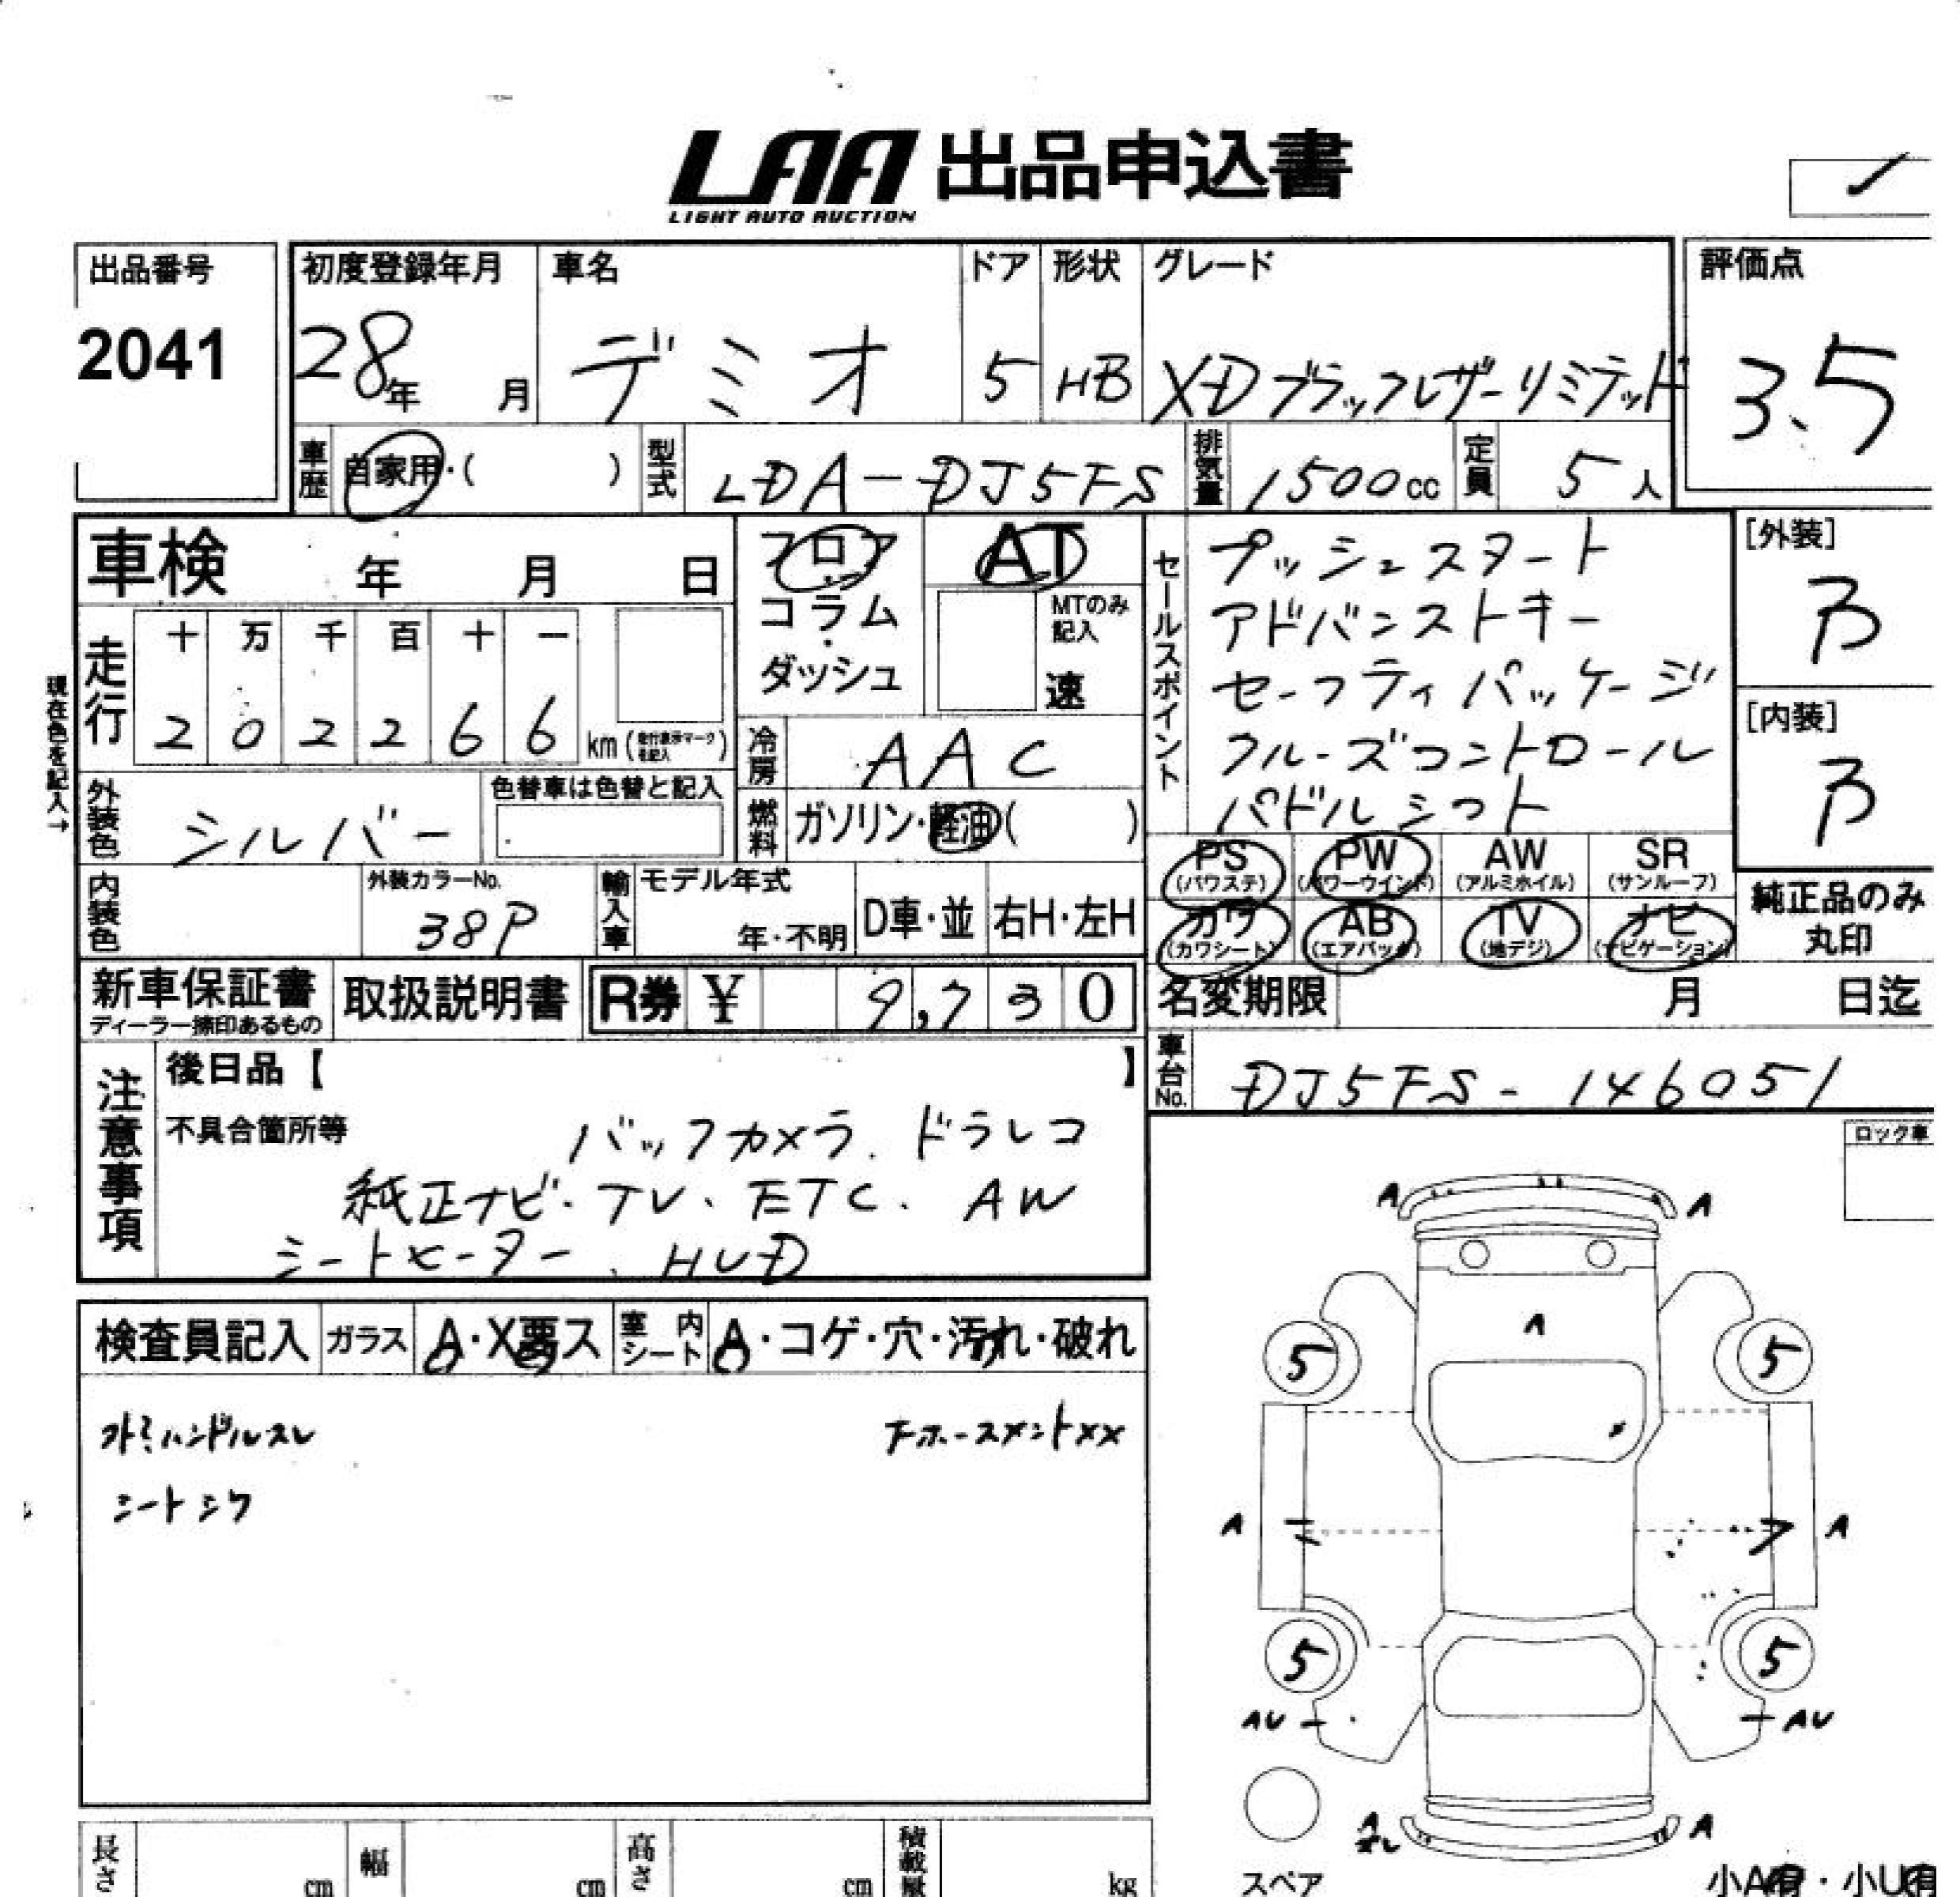 LAA 出品申込書
LIGHT AUTO AUCTION
出品番号
2041
初度登録年月
28年 月
車名
デミオ
ドア
5
形状
HB
グレード
XDブラックレザーリミテッド
評価点
3.5
車歴
自家用・( )
型式
LDA-DJ5FS
排気量
1500cc
定員
5人
車検 年 月 日
フロア
コラム
・
ダッシュ
AT
MTのみ
記入
速
セールスポイント
プッシュスタート
アドバンストキー
セーフティパッケージ
クルーズコントロール
パドルシフト
[外装]
B
[内装]
B
現在色を記入→
走行
十 万 千 百 十 一
2 0 2 2 6 6 km (走行表示マークを記入)
冷房
AAC
外装色
シルバー
色替車は色替と記入
燃料
ガソリン・軽油( )
内装色
外装カラーNo.
38P
輸入車
モデル年式
年・不明
D車・並
右H・左H
PS (パワステ)
PW (パワーウインド)
AW (アルミホイル)
SR (サンルーフ)
カワ (カワシート)
AB (エアバック)
TV (地デジ)
ナビ (ナビゲーション)
純正品のみ
丸印
新車保証書
ディーラー捺印あるもの
取扱説明書
R券 ¥ 9,730
名変期限 月 日迄
車台No.
DJ5FS-146051
注意事項
後日品【 】
不具合箇所等
バックカメラ、ドラレコ
純正ナビ・TV、ETC、AW
シートヒーター、HUD
ロック車
検査員記入
ガラス
A・X悪ス
室内シート
A・コゲ・穴・汚れ・破れ
ハンドルスレ
ホースメントXX
シートシワ
A A
A
5 5
A A
5 5
AU AU
A A
スペア
小A有・小U有
長さ cm
幅 cm
高さ cm
積載量 kg